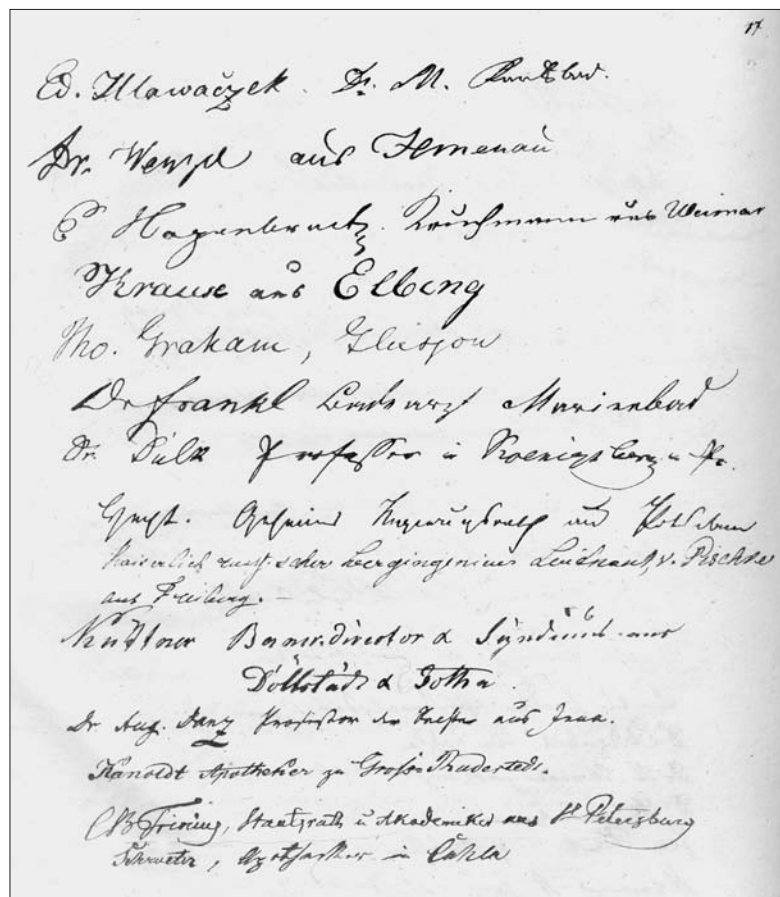 17
Ed. Hlawaczek. Dr. M. Karlsbad.
Dr. Wenzel aus Ilmenau
Hagenbruch. Kaufmann aus Weimar
Krause aus Elbing
Tho. Graham, Glasgow
Dr Frankl Badearzt Marienbad
Dr. Dulk Professor in Koenigsberg in Pr.
Geheimer Regierungsrath aus Potsdam
Kaiserlich russischer Bergingenieur Leutnant, v. Pischke
aus Freiberg.
Küttner director & Syndicus aus
Döllstädt & Gotha.
Dr. Aug. Danz Professor der Rechte aus Jena.
Kanoldt Apotheker zu Groß-Rudestedt.
CB Trinius, Staatsrath u Akademiker aus St Petersburg
Schroeter, Apotheker in Cahla